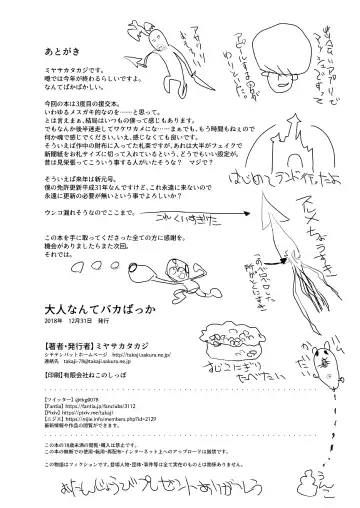 あとがき
ミヤサカタカジです。
噂では今年が終わるらしいですよ。
なんてばかばかしい。
今回の本は3度目の援交本。
いわゆるメスガキ的なのを……と思って。
とは言えまぁ、結局はいつもの僕って感じもあります。
でもなんか後半迷走してワケワカメにな……まぁでも、もう時間もねぇので
何か魂で感じてください。いえ、感じなくても良いです。
そういえば作中の財布に入ってた札束ですが、あれは大半がフェイクで
新聞紙をお札サイズに切って入れているという、どうでもいい設定が。
昔は見栄張ってこういう事する人がいたそうな？　マジで？
そういえば来年は新元号。
僕の免許更新平成31年なんですけど、これ永遠に来ないので
永遠に更新の必要が無いという事でよろしいか？
ウンコ漏れそうなのでここまで。
この本を手に取ってくださった全ての方に感謝を。
機会がありましたらまた次回。
それでは。
大人なんてバカばっか
2018年　12月31日　発行
【著者・発行者】ミヤサカタカジ
シチテンバットホームページ　http://takaji.sakura.ne.jp/
連絡先　takaji-78@takaji.sakura.ne.jp
【印刷】有限会社ねこのしっぽ
【ツイッター】@tkg0078
【Fantia】https://fantia.jp/fanclubs/3112
【Pixiv】https://pixiv.me/takaji
【ニジエ】https://nijie.info/members.php?id=2129
最新情報や作品の閲覧ができます。
この本の18歳未満の閲覧・購入は禁止です。
この本の無断での使用・転用・再配布・インターネット上へのアップロードは厳禁です。
この物語はフィクションです。登場人物・団体・事件等は全て実在のものとは関係ありません。
はじめてランド行ったよ
スルメちょうすき
たべたい
うんこ
おたんじょうびプレゼントありがとう